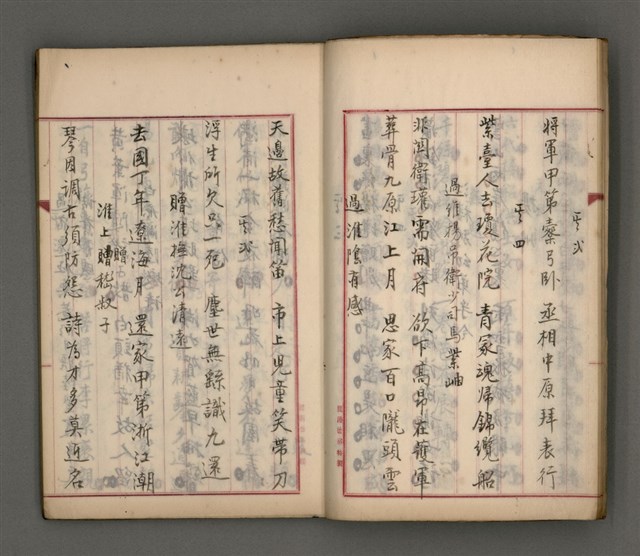 其弍
將軍甲第橐弓臥 丞相中原拜表行
其四
紫臺人去瓊花院 青冢魂歸錦纜船
過維揚吊衛少司馬紫岫
非關衛瓘需開府 欲下高昂在護軍
葬骨九原江上月 思家百口隴頭雲
過淮陰有感
天邊故舊愁聞笛 市上兒童笑帶刀
其弍
浮生所欠只一死 塵世無繇識九還
贈淮撫沈公清遠
去國丁年遼海月 還家甲第浙江潮
淮上贈嵇叔子
贈
琴因調古須防怨 詩為才多莫近名